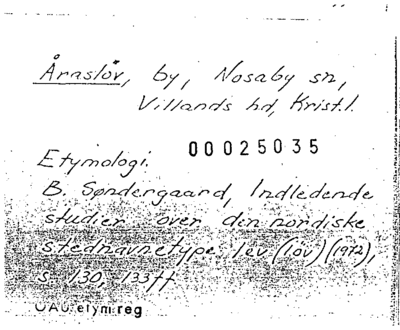 Åraslöv, by, Nosaby sn,
Villands hd, Krist.l.
00025035
Etymologi.
B. Søndergaard, Indledende
studier over den nordiske
stednavnetype lev (löv) (1972),
s. 130, 133 ff
OAU etym.reg